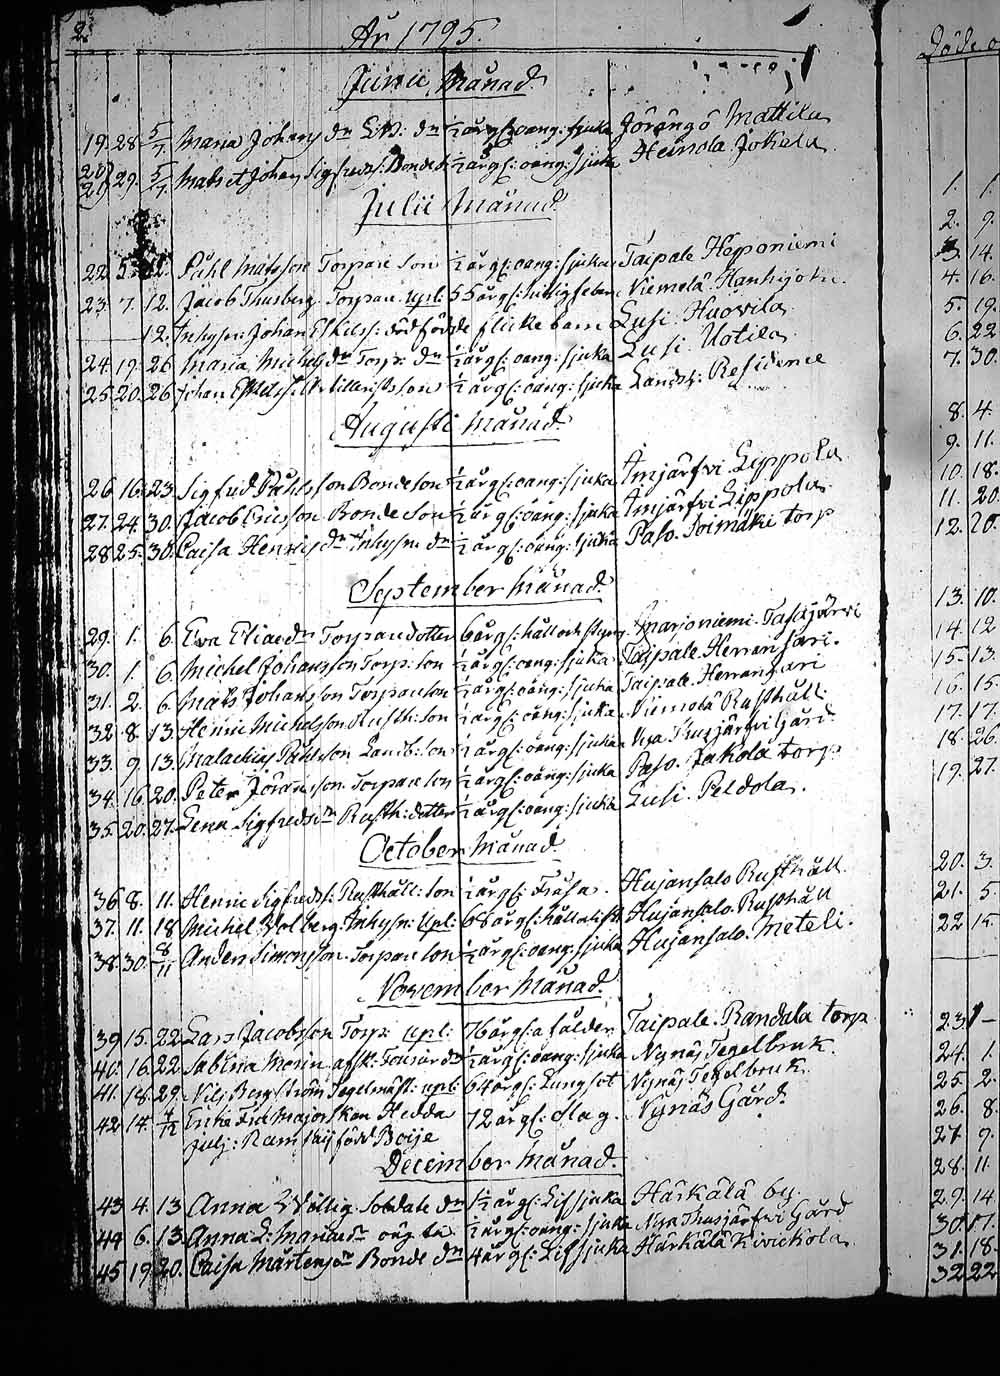 2.
År 1795.
Junii Månad
19. 28 5/7 Maria Johans dr ½ årgl: oang: sjuka Jöröngö Mattila
29. 5/7 Mats et Johan Sigfredss: Bonde ½ årgl: oang: sjuka Heinola Jokela
Julii Månad
22. 5. 12. Påhl Matsson Torpare Son ½ årgl: oang: sjuka Taipale Heponiemi
23. 7. 12. Jacob Thusberg Torpare upl: 55 årgl: hitsig feber Niemelä
12. Inhysn: Johan Eskelss: död födde flicke barn Lusi Huovila
24. 19. 26 Maria Michels dr Torp: dr ½ årgl: oang: sjuka Lusi Uotila
25. 20. 26 Johan Eskelss: Artilleristsson ½ årgl: oang: sjuka Landsh: Residence
Augusti Månad
26 16. 23. Sigfred Påhlsson Bondeson ½ årgl: oang: sjuka Imjärfvi Lippola
27. 24. 30. Jacob Ericsson Bonde Son ½ årgl: oang: sjuka Imjärfvi Lippola
28 25. 30. Caisa Henrics dr Inhysn: dr ½ årgl: oang: sjuka Paso. Soimäki torp
September Månad
29. 1. 6. Eva Elias dr Torparedotter 6 årgl: håll och styng Marjoniemi Tassjärvi
30. 1. 6. Michel Johansson Torp: son ½ årgl: oang: sjuka Taipale Herransari.
31. 2. 6. Mats Johansson Torpareson ½ årgl: oang: sjuka Taipale. Herransari
32. 8. 13. Henric Michelsson Rusth: son ½ årgl: oang: sjuka Niemelä Rusthåll
33. 9. 13. Malachias Påhlsson Landb: son ½ årgl: oang: sjuka Nya Thusjärfvi Gård
34. 16. 20. Peter Jöransson Torpare son ½ årgl: oang: sjuka Paso. Jakola torp.
35. 20. 27. Lena Sigfreds dr Rusth: dotter ½ årgl: oang: sjuka Lusi Peldola.
October Månad
36 8. 11. Henric Sigfredss: Rusthåll: son ½ årgl: Fråsa. Hujansalo Rusthåll
37. 11. 18 Michel Volberg Inhysn: Upl: 68 årgl: Hujansalo. Rusthåll
38. 30. 8/11 Anders Simonsson Torpare son ½ årgl: oang: sjuka Hujansalo. Meteli.
November Månad.
39 15. 22 Lars Jacobsson Torp: upl: 76 årgl: a ålder Taipale. Randala torp
40. 16. 22 Sabina Morin afsk: dr ½ årgl: oang: sjuka Nynäs Tegelbruk.
41. 18. 29. Nils Bergström Tegelmäst: upl: 64 årgl: Lungsot Nynäs Tegelbruk
42 14. 4/12 Enke Fru Majorskan Hedda 72 årgl: slag. Nynäs Gård.
Julj: Ramsay född Boije
December Månad.
43 4. 13 Anna Vällig Soldate dr ½ årgl: Lifsjuka Härkälä by
44 6. 13 Anna L: Mariae dr oäg ta ½ årgl: oang: sjuka Nya Thusjärfvi Gård
45 19. 20. Caisa Mårtens dr Bonde dr 4 årgl: Lifsjuka Härkälä Kivickola
Döde
1. 1.
2. 9.
3. 14.
4. 16.
5. 19.
6. 22
7. 30.
8. 4.
9. 11.
10. 18.
11. 20
12. 20.
13. 10.
14. 12
15. 13.
16. 15.
17. 17.
18. 26.
19. 27.
20. 3.
21. 5.
22 15.
23. 1
24. 1.
25 2.
26. 8.
27 9.
28. 11.
29. 14
30. 17.
31. 18.
32 22